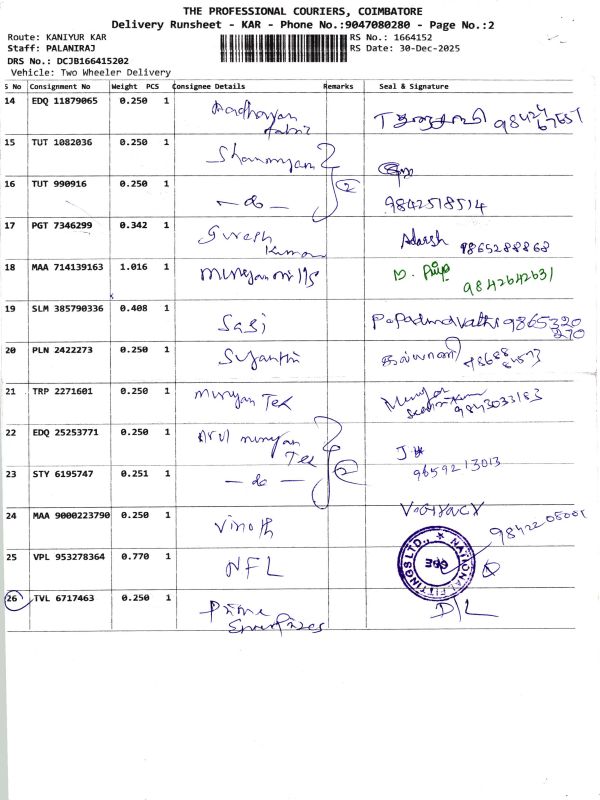 THE PROFESSIONAL COURIERS, COIMBATORE
Delivery Runsheet - KAR - Phone No.:9047080280 - Page No.:2
Route: KANIYUR KAR RS No.: 1664152
Staff: PALANIRAJ RS Date: 30-Dec-2025
DRS No.: DCJB166415202
Vehicle: Two Wheeler Delivery
S No Consignment No Weight PCS Consignee Details Remarks Seal & Signature
14 EDQ 11879065 0.250 1
15 TUT 1082036 0.250 1 Shanmugam
16 TUT 990916 0.250 1 - do - 2 9842518514
17 PGT 7346299 0.342 1 Suresh Kumar Adarsh 9865288868
18 MAA 714139163 1.016 1 Murugan mills M. Priya 9842642631
19 SLM 385790336 0.408 1 Sasi Papadmavathi 9865320270
20 PLN 2422273 0.250 1 Sujanthi கல்யாணி
21 TRP 2271601 0.250 1 Murugan Tex 9843033183
22 EDQ 25253771 0.250 1 Arul murugan Tex 9659213013
23 STY 6195747 0.251 1 - do - 2
24 MAA 9000223790 0.250 1 Vinoth
25 VPL 953278364 0.770 1 NFL NATIONAL FITTINGS LTD., CBE
26 TVL 6717463 0.250 1 Prime Enterprises D/L